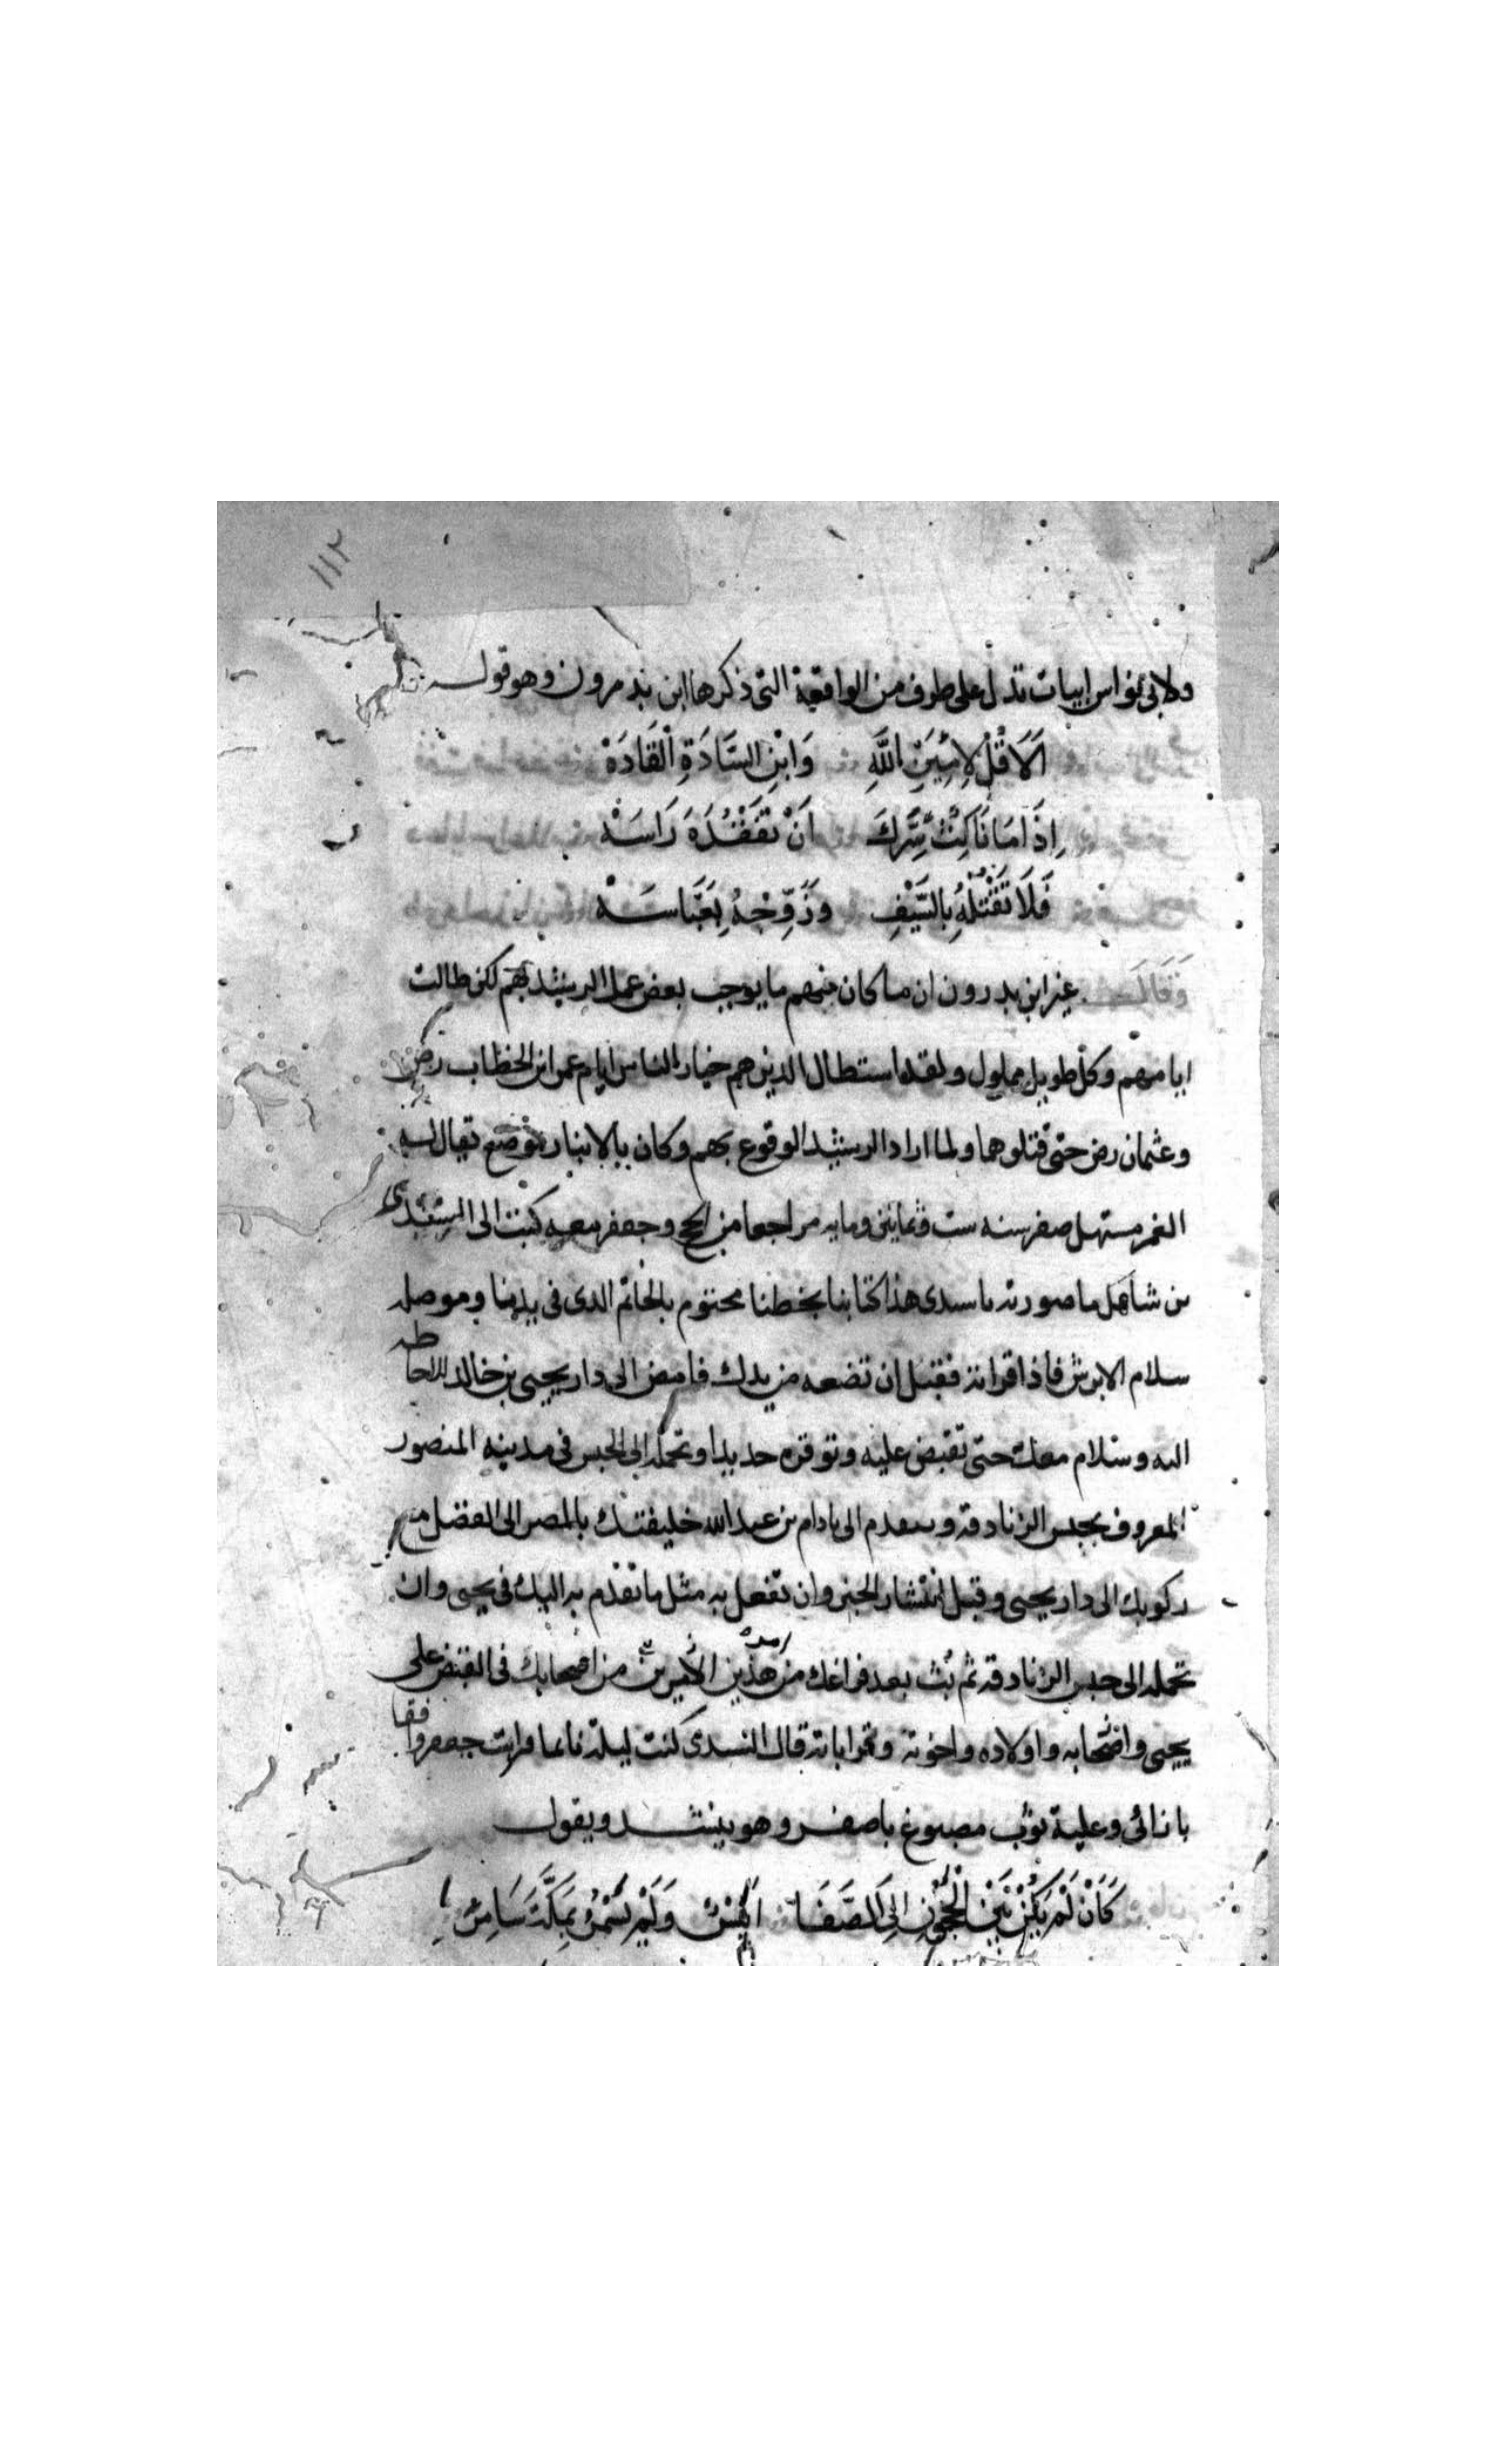 ١١٢
ولابي نواس ابيات تدل على طرف من الواقعة التى ذكرها ابن بدرون وهو قوله
اَلَا قُلْ لِاَمِيْنِ اللّٰهِ وَابْنِ السَّادَةِ الْقَادَةْ
اِذَا مَا نَاكِثٌ سَرَّكَ اَنْ تَفْقُدَهَ رَاسَهْ
فَلَا تَقْتُلْهُ بِالسَّيْفِ وَزَوِّجْهُ بِعَبَّاسَهْ
وَقَالَ غير ابن بدرون ان ما كان منهم ما يوجب بعض عمل الرشيد بهم لكن طالت
ايامهم وكل طويل مملول ولقد استطال الذين هم خيار الناس ايام عمر ابن الخطاب رض
وعثمان رض حتى قتلوهما ولما اراد الرشيد الوقوع بهم وكان بالانبار بموضع يقال له
الغمر مستهل صفر سنه ست وثمانين ومايه مراجعا من الحج وجعفر معه كتب الى السندى
بن شاهك ما صورته يا سيدى هذا كتابنا بخطنا مختوم بالخاتم الذى فى يدينا وموصله
سلام الابرش فاذا قراته فقبل ان تضعه من يدك فامض الى دار يحيى بن خالد للاحاطه
اليه وسلام معك حتى تقبض عليه وتوقره حديدا وتحمله الى الحبس فى مدينه المنصور
المعروف بحبس الزنادقه وتتقدم الى بادام بن عبد الله خليفتك بالمصر الى الفضل مع
ركوبك الى دار يحيى وقبل انتشار الخبر وان تفعل به مثل ما تقدم به اليك فى يحيى وان
تحمله الى حبس الزنادقه ثم بث بعد فراغك من امر هذين الاميرين من اصحابك فى القبض على
يحيى واصحابه واولاده واخوته وقراباته قال السندى كنت ليلة نايما فرايت جعفرا فقا
باتائى وعليه ثوب مصبوغ باصفر وهو ينشد ويقول
كَاَنْ لَمْ يَكُنْ بَيْنَ الْحَجُوْنِ اِلَى الصَّفَا اَنِيْسٌ وَلَمْ يَسْمُرْ بِمَكَّةَ سَامِرُ